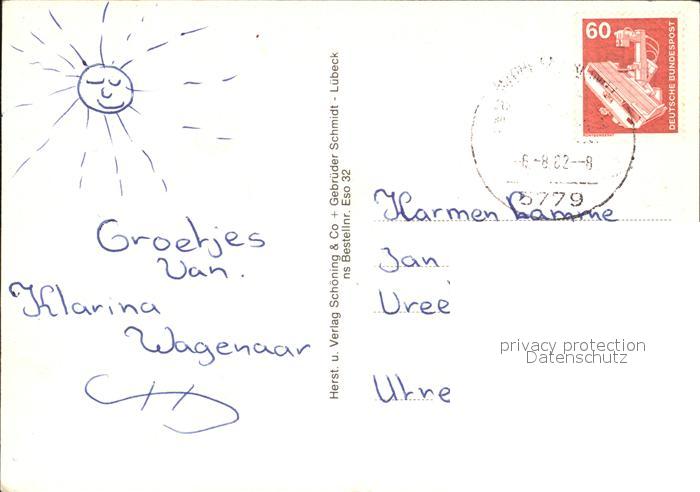 Groetjes
Van.
Klarina
Wagenaar
Herst. u. Verlag Schöning & Co + Gebrüder Schmidt - Lübeck
ns Bestellnr. Eso 32
60
DEUTSCHE BUNDESPOST
-8.82--8
5779
Karmen
Jan
Vree
Utre
privacy protection
Datenschutz